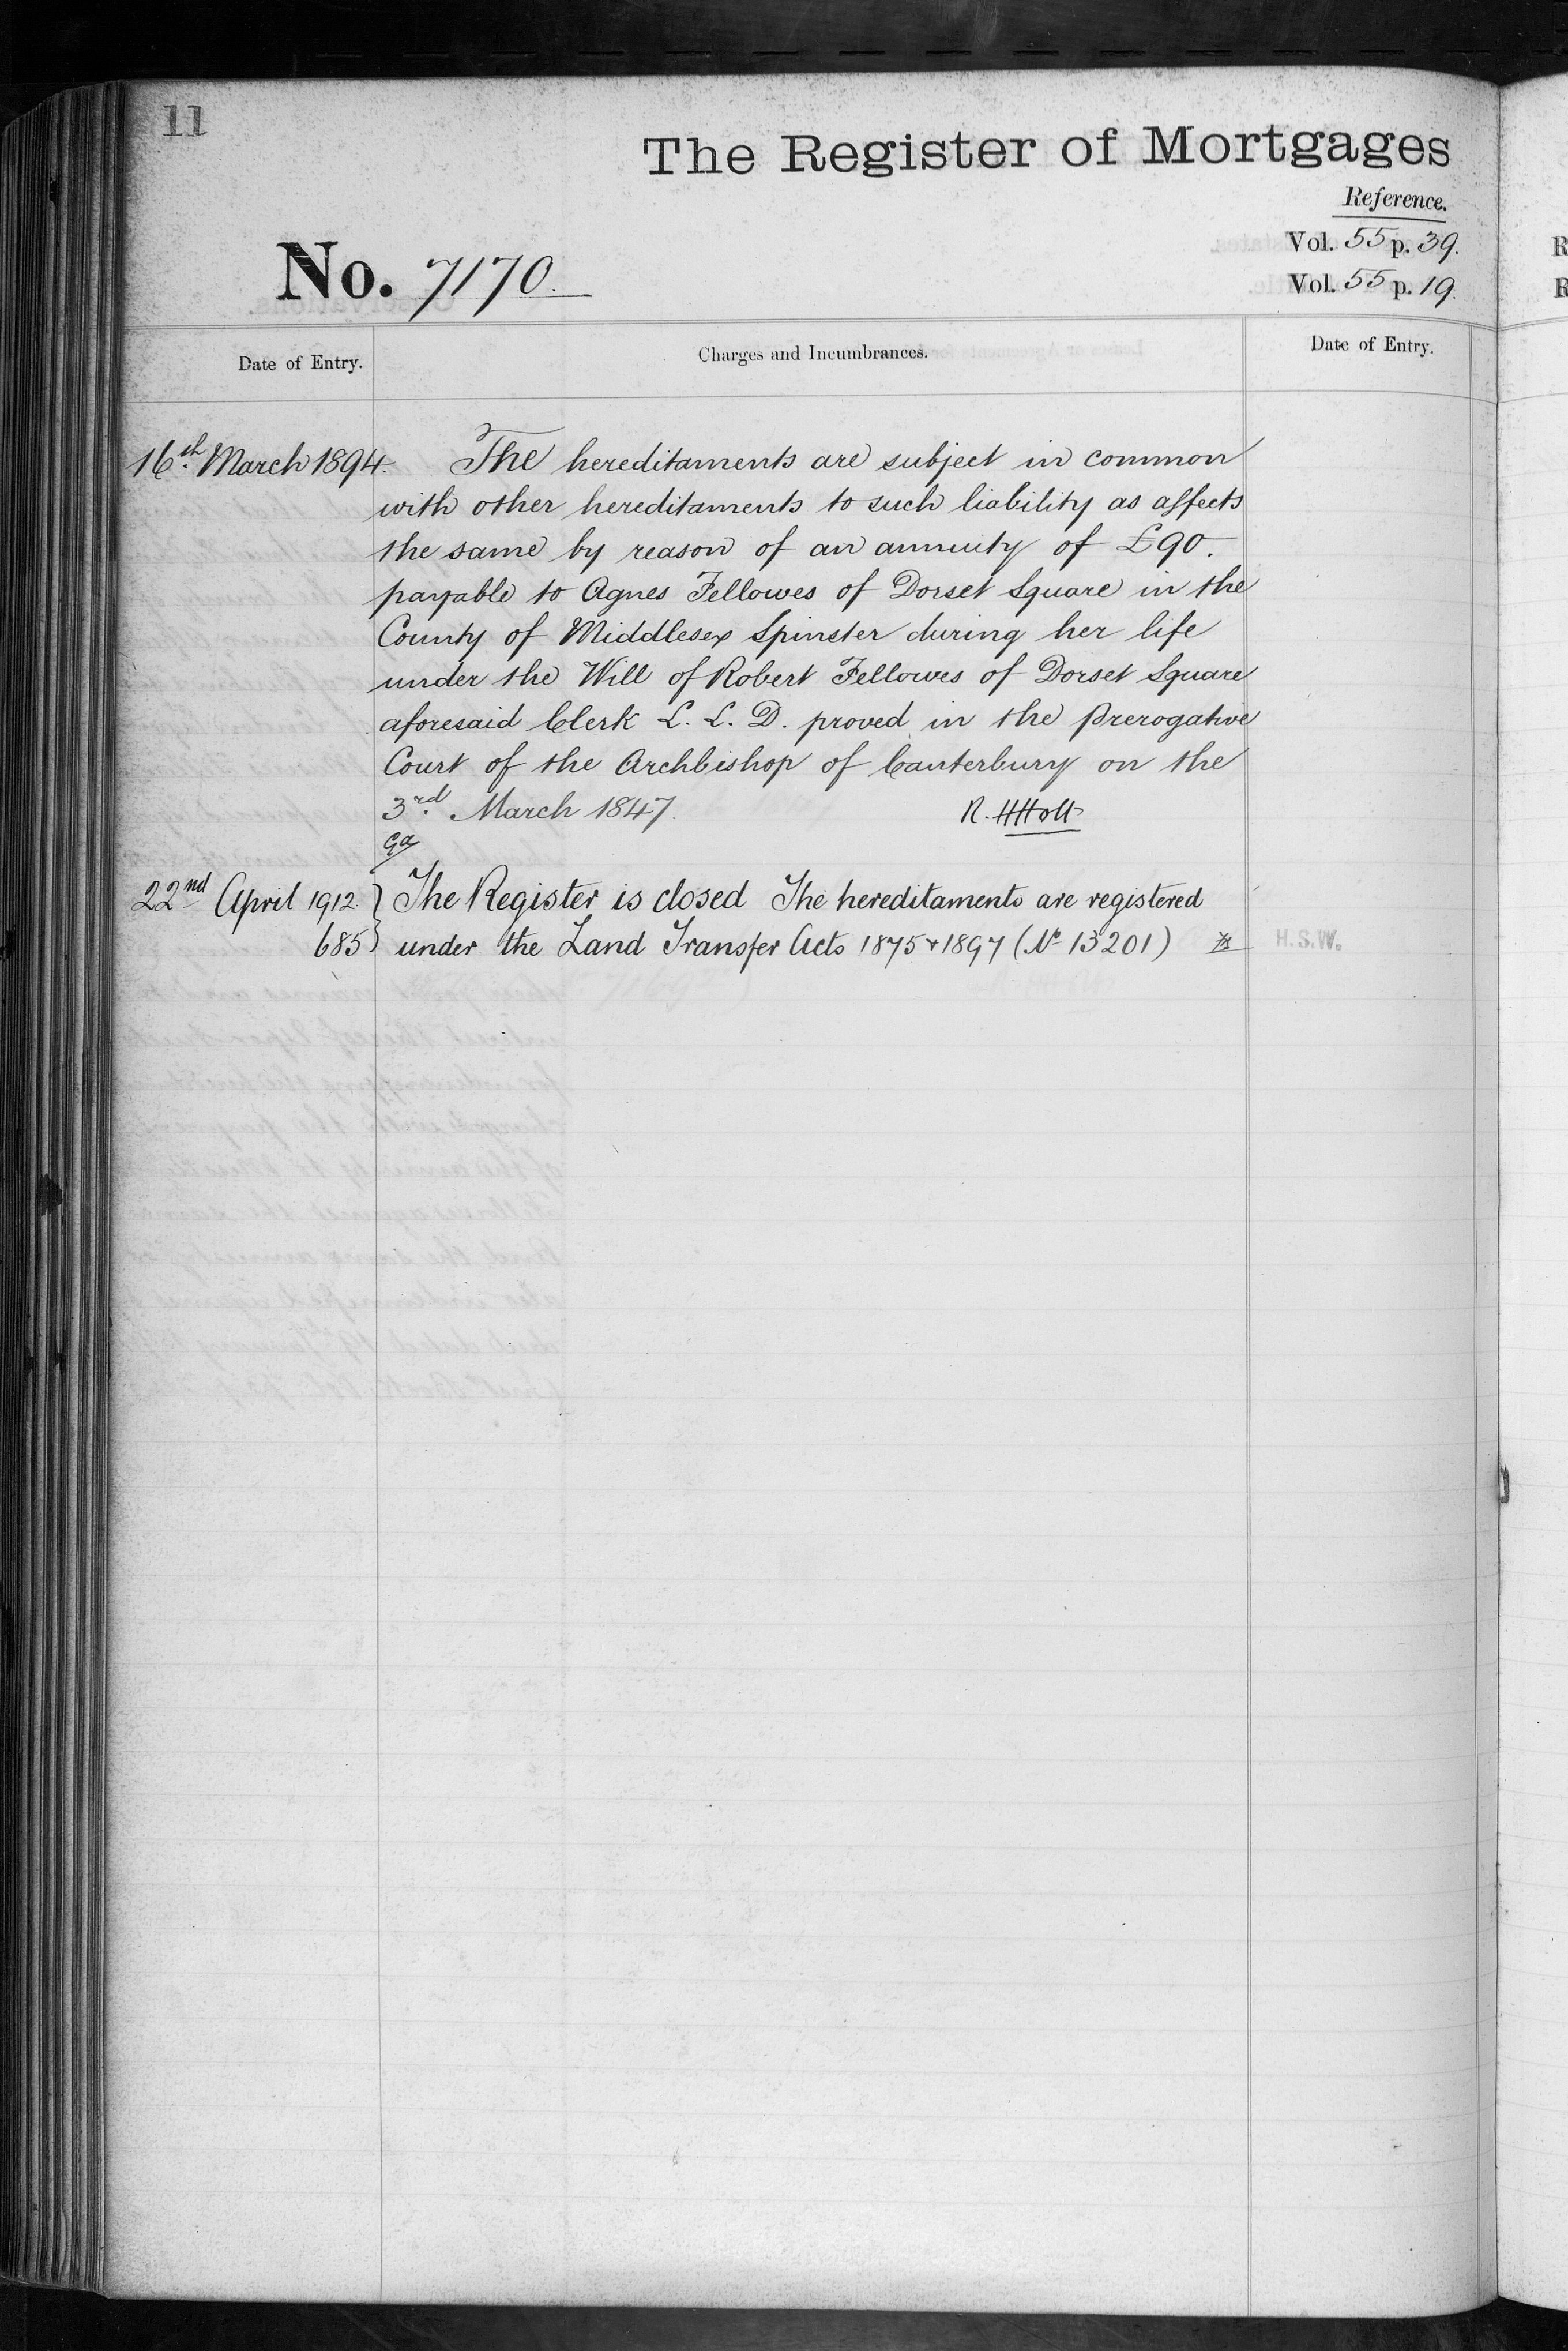 11
The Register of Mortgages
Reference.
Vol. 55 p. 39.
No. 7170.
Vol. 55 p. 19.
Date of Entry.
Charges and Incumbrances.
Date of Entry.
16th March 1894. The hereditaments are subject in common
with other hereditaments to such liability as affects
the same by reason of an annuity of £90.
payable to Agnes Fellowes of Dorset Square in the
County of Middlesex Spinster during her life
under the Will of Robert Fellowes of Dorset Square
aforesaid Clerk L. L. D. proved in the Prerogative
Court of the Archbishop of Canterbury on the
3rd March 1847. R. H Holt
Ga
22nd April 1912. The Register is closed The hereditaments are registered
685 under the Land Transfer Acts 1875 & 1897 (No 13201) H.S.W.